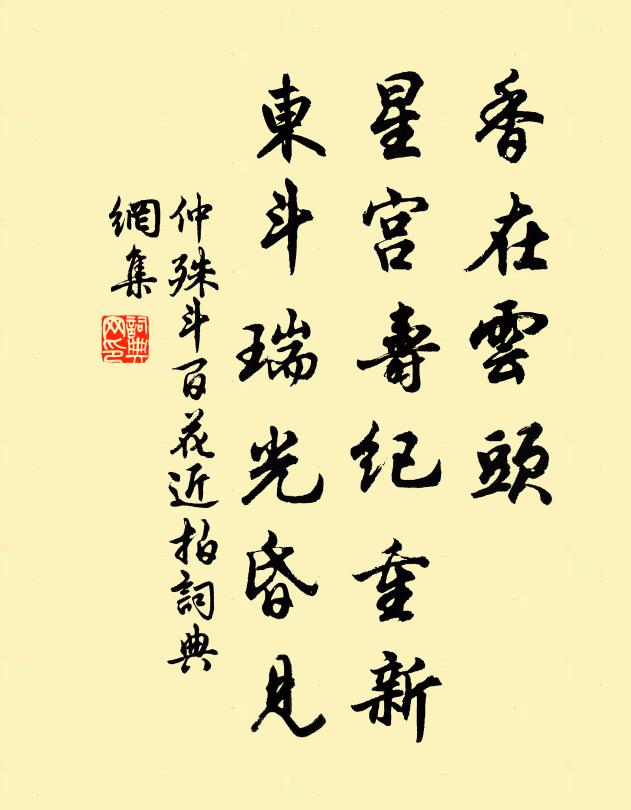 香在雲頭
星宮壽紀重新
東斗瑞光昏見
仲殊斗百花近拍詞典
網集
詞典
网印